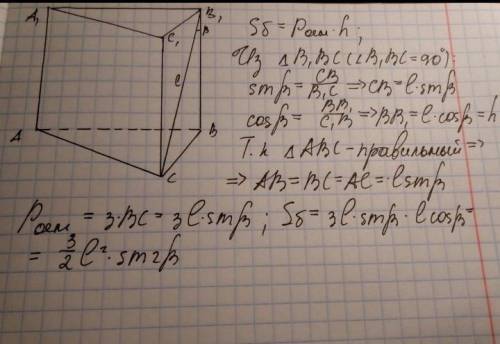 A₁ B₁
β
C₁
ℓ
A B
C
Sб = Pосн · h ;
Из △B₁BC (∠B₁BC = 90°):
sinβ = CB/B₁C => CB = ℓ · sinβ
cosβ = BB₁/C₁B => BB₁ = ℓ · cosβ = h
Т.к △ABC – правильный =>
=> AB = BC = AC = ℓ sinβ
Pосн = 3 · BC = 3ℓ · sinβ ; Sб = 3ℓ · sinβ · ℓ cosβ =
= 3/2 ℓ² · sin2β